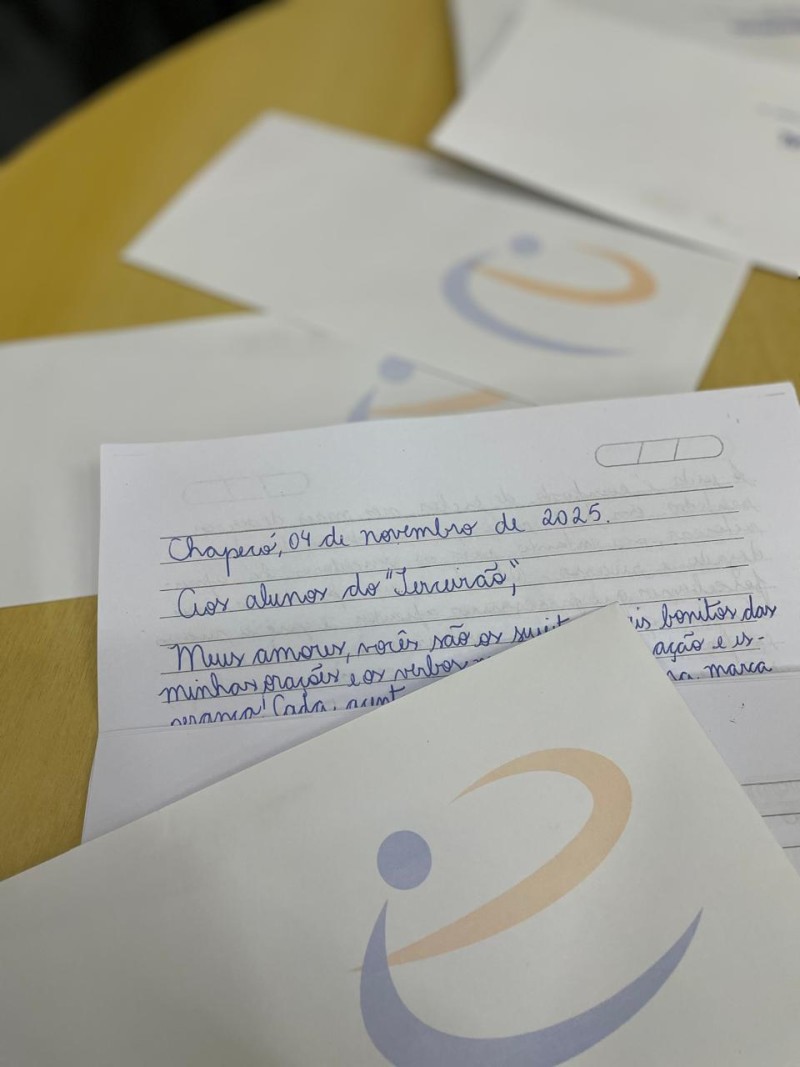 Chapecó, 04 de novembro de 2025.
Aos alunos do "Terceirão",
Meus amores, vocês são os sujeit is bonitos das
minhas orações e os verbos ação e es-
perança! Cada marca